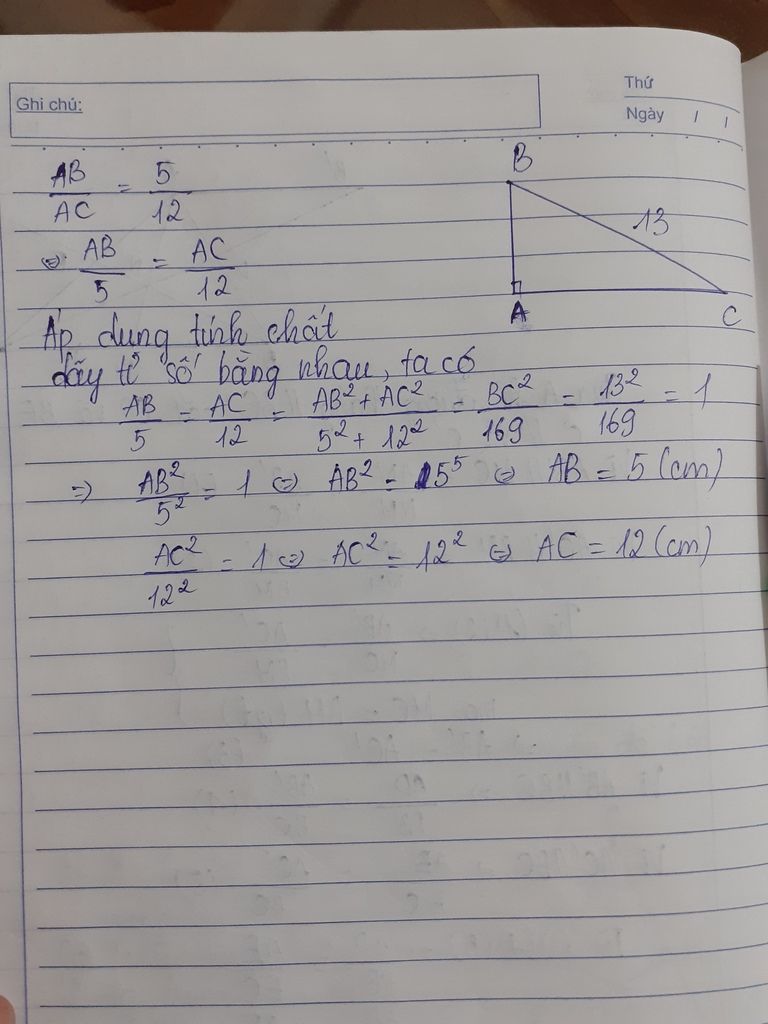 Thứ
Ghi chú:
Ngày / /
AB/AC = 5/12
B
⇔ AB/5 = AC/12
13
A
C
Áp dung tính chất
dãy tỉ số bằng nhau, ta có
AB/5 = AC/12 = (AB² + AC²)/(5² + 12²) = BC²/169 = 13²/169 = 1
=> AB²/5² = 1 ⇔ AB² = 5⁵ ⇔ AB = 5 (cm)
AC²/12² = 1 ⇔ AC² = 12² ⇔ AC = 12 (cm)